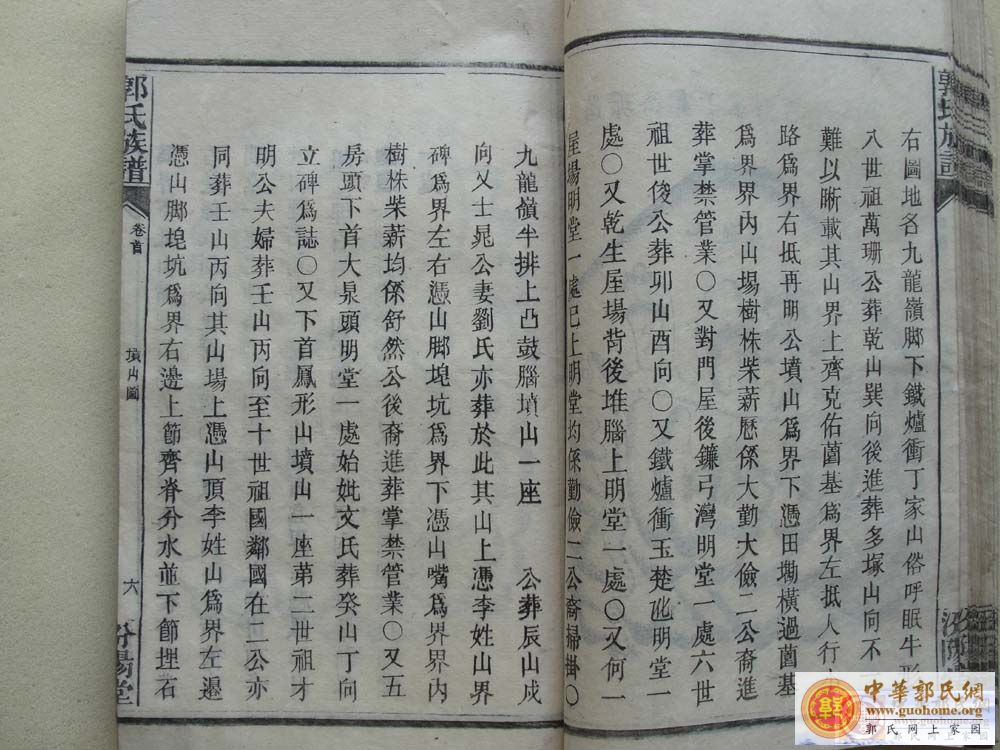 郭氏族譜
右圖地名九龍嶺脚下鐵爐衝丁家山俗呼眠牛形
八世祖萬珊公葬乾山巽向後進葬多塚山向不
難以晰載其山界上齊克佑薗基爲界左抵人行
路爲界右抵再明公墳山爲界下憑田墈橫過薗基
爲界界內山場樹株柴薪歷係大勤大儉二公裔進
葬掌禁管業〇又對門屋後鐮弓灣明堂一處六世
祖世俊公葬卯山酉向〇又鐵爐衝玉楚屋明堂一
處〇又乾生屋場背後堆腦上明堂一處〇又何一
屋場明堂一處已上明堂均係勤儉二公裔掃掛〇
九龍嶺半排上凸鼓腦墳山一座 公葬辰山戍
向又士晃公妻劉氏亦葬於此其山上憑李姓山界
碑爲界左右憑山脚塊坑爲界下憑山嘴爲界界內
樹株柴薪均係舒然公後裔進葬掌禁管業〇又五
房頭下首大泉頭明堂一處始妣文氏葬癸山丁向
立碑爲誌〇又下首鳳形山墳山一座第二世祖才
明公夫婦葬壬山丙向至十世祖國鄰國在二公亦
同葬壬山丙向其山場上憑山頂李姓山爲界左邊
憑山脚塊坑爲界右邊上節齊脊分水並下節埋石
郭氏族譜
卷首
墳山圖
六
汾陽堂
中華郭氏網
www.guohome.org
郭氏网上家园